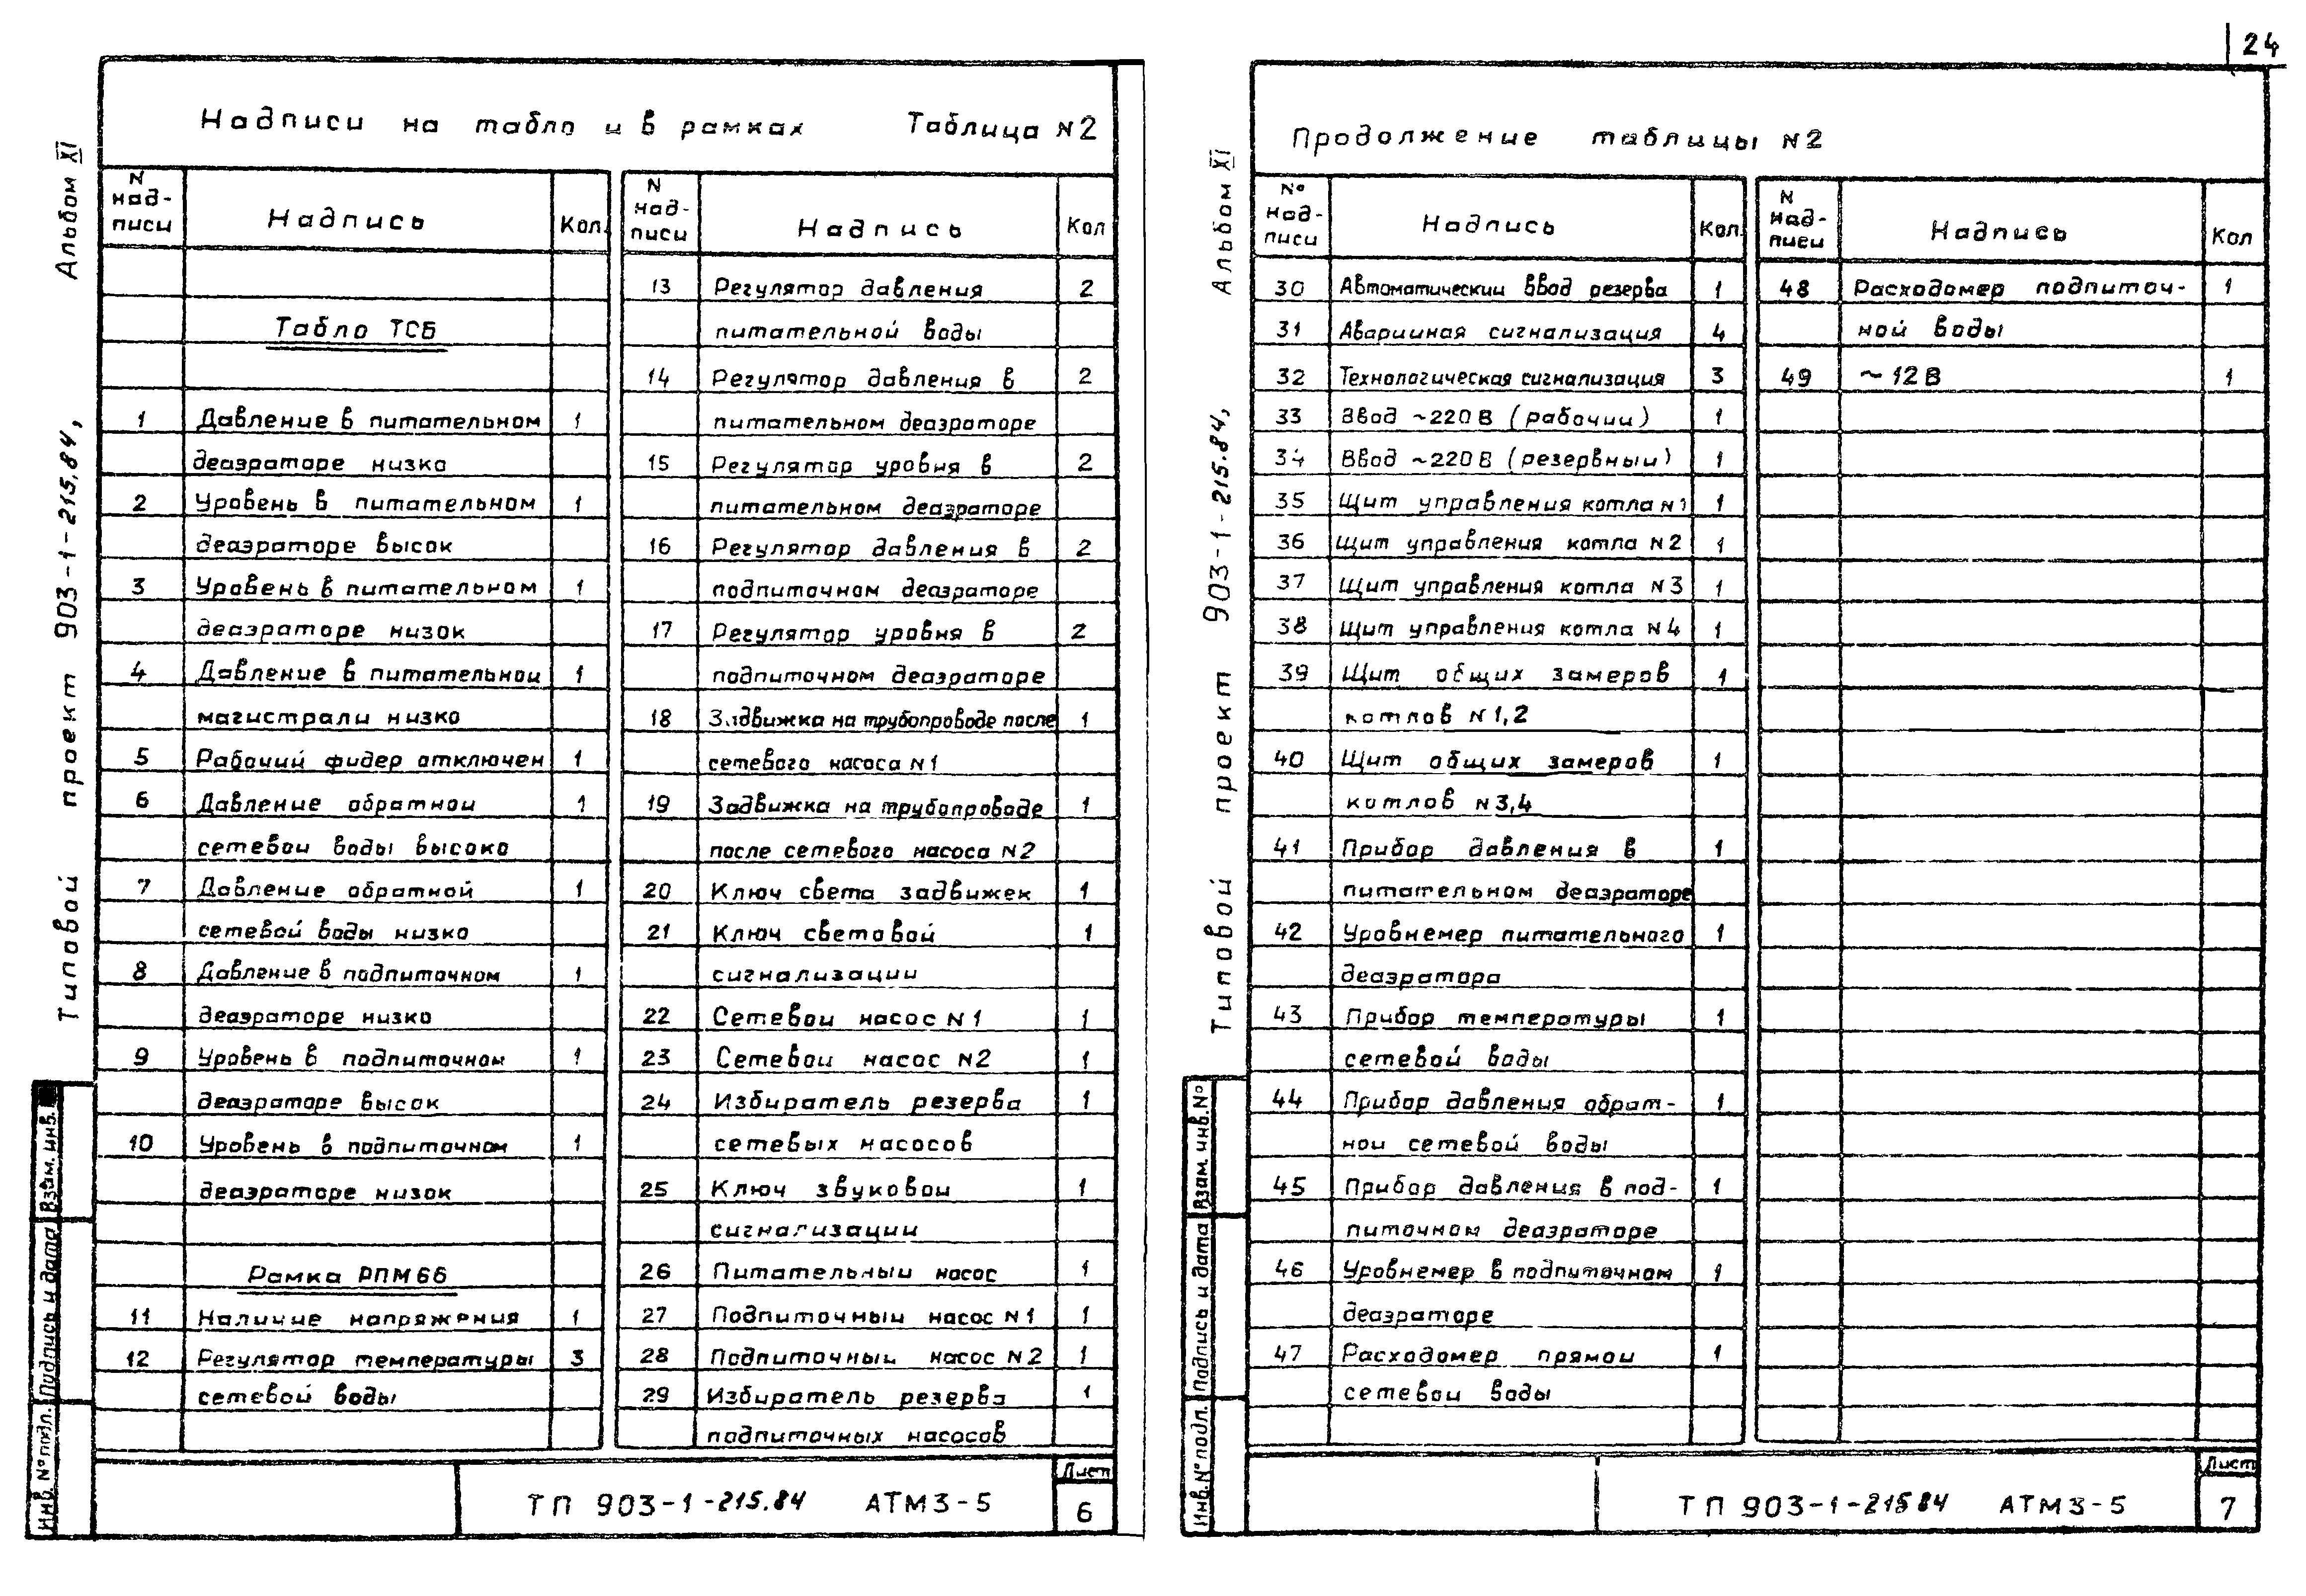 24
Надписи на табло и в рамках Таблица N2
N надписи Надпись Кол.
Табло ТСБ
1 Давление в питательном 1
деаэраторе низко
2 Уровень в питательном 1
деаэраторе высок
3 Уровень в питательном 1
деаэраторе низок
4 Давление в питательной 1
магистрали низко
5 Рабочий фидер отключен 1
6 Давление обратной 1
сетевой воды высоко
7 Давление обратной 1
сетевой воды низко
8 Давление в подпиточном 1
деаэраторе низко
9 Уровень в подпиточном 1
деаэраторе высок
10 Уровень в подпиточном 1
деаэраторе низок
Рамка РПМ66
11 Наличие напряжения 1
12 Регулятор температуры 3
сетевой воды
N надписи Надпись Кол
13 Регулятор давления 2
питательной воды
14 Регулятор давления в 2
питательном деаэраторе
15 Регулятор уровня в 2
питательном деаэраторе
16 Регулятор давления в 2
подпиточном деаэраторе
17 Регулятор уровня в 2
подпиточном деаэраторе
18 Задвижка на трубопроводе после 1
сетевого насоса N1
19 Задвижка на трубопроводе 1
после сетевого насоса N2
20 Ключ света задвижек 1
21 Ключ световой 1
сигнализации
22 Сетевой насос N1 1
23 Сетевой насос N2 1
24 Избиратель резерва 1
сетевых насосов
25 Ключ звуковой 1
сигнализации
26 Питательный насос 1
27 Подпиточный насос N1 1
28 Подпиточный насос N2 1
29 Избиратель резерва 1
подпиточных насосов
ТП 903-1-215.84 АТМ3-5
Лист
6
Типовой проект 903-1-215.84, Альбом XI
Взам. инв.
Подпись и дата
Инв. N° подл.
Продолжение таблицы N2
N° надписи Надпись Кол.
30 Автоматический ввод резерва 1
31 Аварийная сигнализация 4
32 Технологическая сигнализация 3
33 Ввод ~220В (рабочий) 1
34 Ввод ~220В (резервный) 1
35 Щит управления котла N1 1
36 Щит управления котла N2 1
37 Щит управления котла N3 1
38 Щит управления котла N4 1
39 Щит общих замеров 1
котлов N1,2
40 Щит общих замеров 1
котлов N3,4
41 Прибор давления в 1
питательном деаэраторе
42 Уровнемер питательного 1
деаэратора
43 Прибор температуры 1
сетевой воды
44 Прибор давления обрат- 1
ной сетевой воды
45 Прибор давления в под- 1
питочном деаэраторе
46 Уровнемер в подпиточном 1
деаэраторе
47 Расходомер прямой 1
сетевой воды
N надписи Надпись Кол
48 Расходомер подпиточ- 1
ной воды
49 ~12В 1
ТП 903-1-215 84 АТМ3-5
Лист
7
Типовой проект 903-1-215.84, Альбом XI
Взам. инв. N°
Подпись и дата
Инв. N° подл.